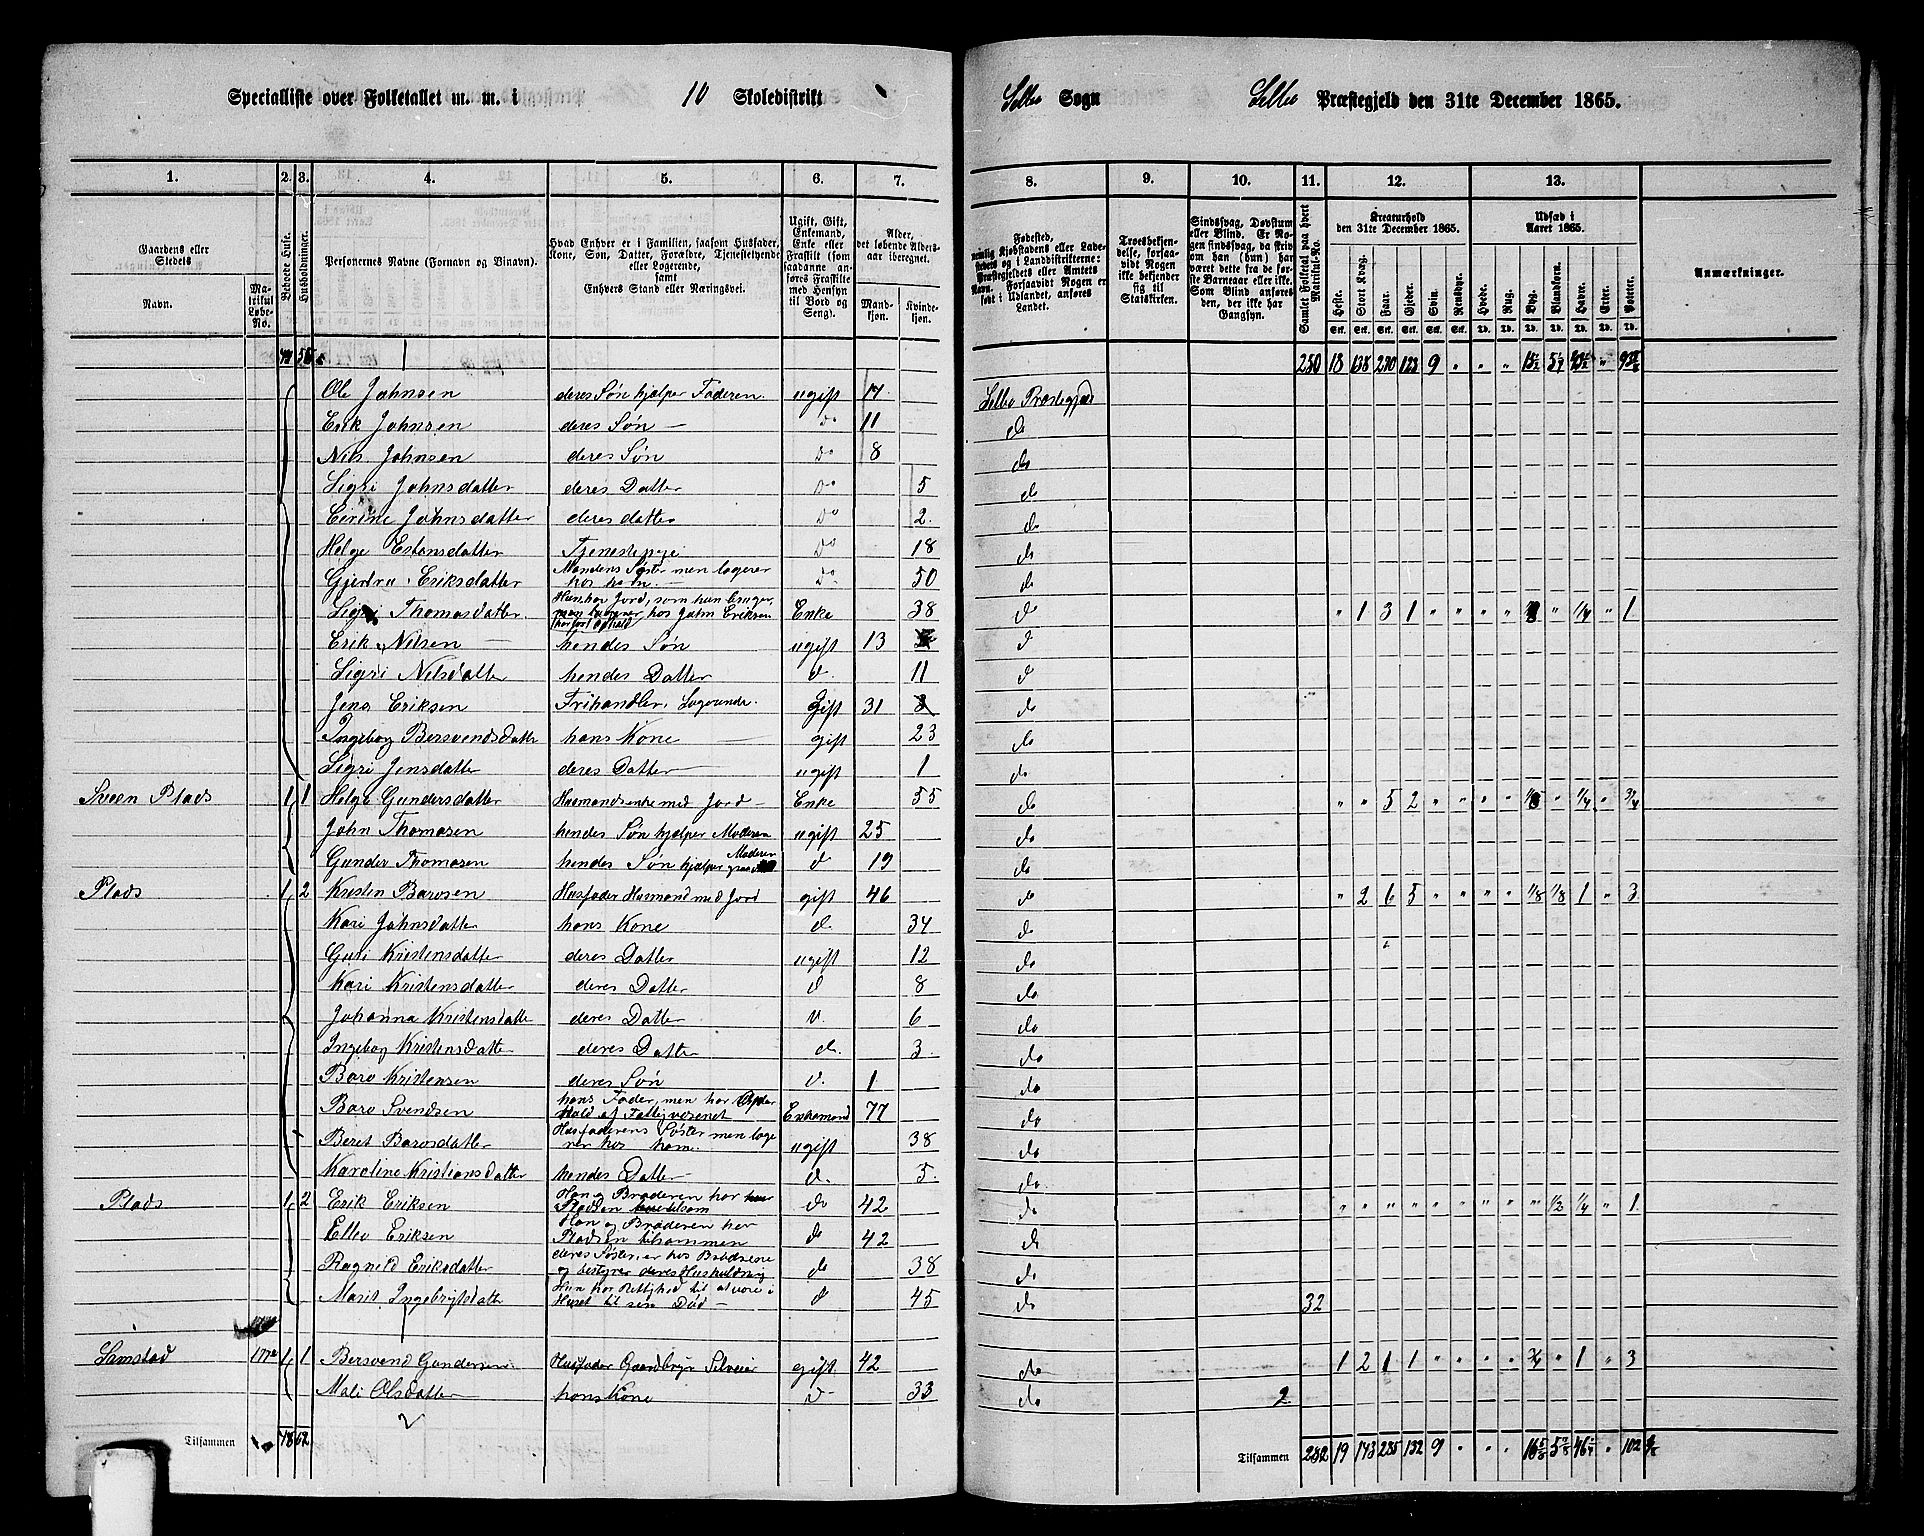 Specialliste over Folketallet m. m. i 10 Skoledistrikt
Selbo Sogn Selbo Præstegjeld den 31te December 1865.
1. 2. 3. 4. 5. 6. 7.
8. 9. 10. 11. 12. 13.
Gaardens eller Stedets
Navn.
Matrikul Løbe-No.
Beboede Huse.
Husholdninger.
Personernes Navne (Fornavn og Tilnavn).
Hvad Enhver er i Familien, saasom Husfader, Kone, Søn, Datter, Forældre, Tjenestetyende eller Logerende,
samt
Enhvers Stand eller Næringsvei.
Ugift, Gift, Enkemand, Enke eller Fraskilt (som saadanne anføres Fraskilte med Hensyn til Bord og Seng).
Alder, det løbende Aldersaar iberegnet.
Mandkjøn. Kvindekjøn.
Fødested,
nemlig Kjøbstadens eller Ladestedets og i Landdistrikterne: Præstegjeldets eller Amtets Navn. Forsaavidt Nogen er født i Udlandet, anføres Landet.
Troesbekjendelse, forsaavidt Nogen ikke bekjender sig til Statskirken.
Sindssvag, Døvstum eller Blind. Er Nogen sindssvag, da skriv om han (hun) har været dette fra de første Barneaar eller ikke. Som Blind anføres den, der ikke har Gangsyn.
Samlet Folketal paa hvert Matrikul-No.
Kreaturhold
den 31te December 1865.
Heste. Stort Kvæg. Faar. Gjeder. Svin. Rensdyr.
Udsæd i Aaret 1865.
Hvede. Rug. Byg. Blandkorn. Havre. Erter. Poteter.
Stk. Stk. Stk. Stk. Stk. Stk. Td. Td. Td. Td. Td. Td. Td.
Anmærkninger.
250 18 138 270 123 9 " " "
Ole Johnsen deres Søn hjælper Faderen. ugift 17. Selbo Præstegjæld
Erik Johnsen deres Søn — Do 11 do
Nils Johnsen deres Søn Do 8 do
Sigri Johnsdatter deres Datter Do 5 do
Johnsdatter deres datter Do 2. do
Helge Estensdatter Tjenestepige Do 18 do
Gjertru Eriksdatter Mandens Søster men logerer hos ham. — Do 50 do
Sigri Thomasdatter. Hun har Jord, som hun bruger, men logerer hos John Eriksen Enke 38 do " 1 3 1 " " " " " 1/4 " 1
Erik Nilsen — hendes Søn ugift 13 d
Sigri Nilsdatter hendes Datter d. 11 d
Jens Eriksen Frihandler, Logerende. Gift 31 do
Ingebog Bersvendsdatter hans Kone gift 23 do
Sigri Jensdatter deres Datter ugift 1 do
Sveen Plads 1 1 Helge Gundersdatter Husmandsenke med Jord — Enke 55 do " " 5 2 " " " " " 1/4 " 3/4
John Thomasen hendes Søn hjælper Moderen ugift 25 do
Gunder Thomasen hendes Søn hjælper Moderen d 19 do
Plads 1 2 Kristen Barosen Husfader Husmand med Jord gift 46 do " 2 6 5 " " " " 1/8 1/8 1 " 3
Kari Johnsdatter hans Kone d. 34 do
Guri Kristensdatter deres Datter ugift 12 do
Kari Kristensdatter deres Datter d 8 do
Johanna Kristensdatte deres Datter d. 6 do
Ingebog Kristensdatter deres Datter d. 3. do
Baro Kristensen deres Søn d. 1 do
Baro Svendsen hans Fader, men har Ophold af Fattigvæsenet Enkemand 77 do
Beret Barosdatter Husfaderens Søster men logerer hos ham. ugift 38 do
Karoline Kristiansdatter hendes Datter d. 5. do
Plads 1 2 Erik Eriksen Han og Broderen har Pladsen tilsam do 42 do " " " " " " " " " 1/2 1/4 " 1
Ellev Eriksen Han og Broderen har Pladsen tilsammen do 42 do
Ragnild Eriksdatter deres Søster, er hos Brødrene og bestyrer deres Husholdning do 38 do
Marit Ingebrigtsdatte Hun har Rettighed til at være i Huset til sin Død — d 45 do 32
Samstad 177a 1 1 Bersvend Gundersen Husfader Gaardbrg Selveier gift 42 do 1 2 1 1 " " " " " 1 " 3
Mali Olsdatter hans Kone d 33 do 2
2
Tilsammen 48 62
Tilsammen 282 19 143 285 132 9 " " "